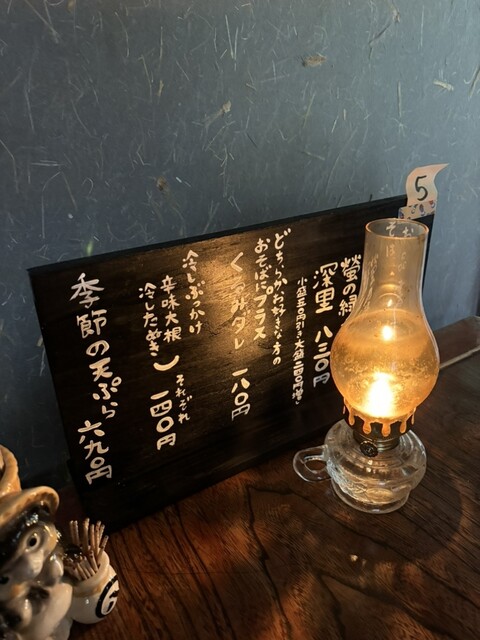 螢の緑
深里 八三〇円
小盛五〇円引き大盛二四〇円増
どちらかお好きな方の
おそばにプラス
くるみダレ 一八〇円
冷しぶっかけ
辛味大根
冷したぬき
それぞれ
一四〇〇円
季節の天ぷら 六九〇円
5
6